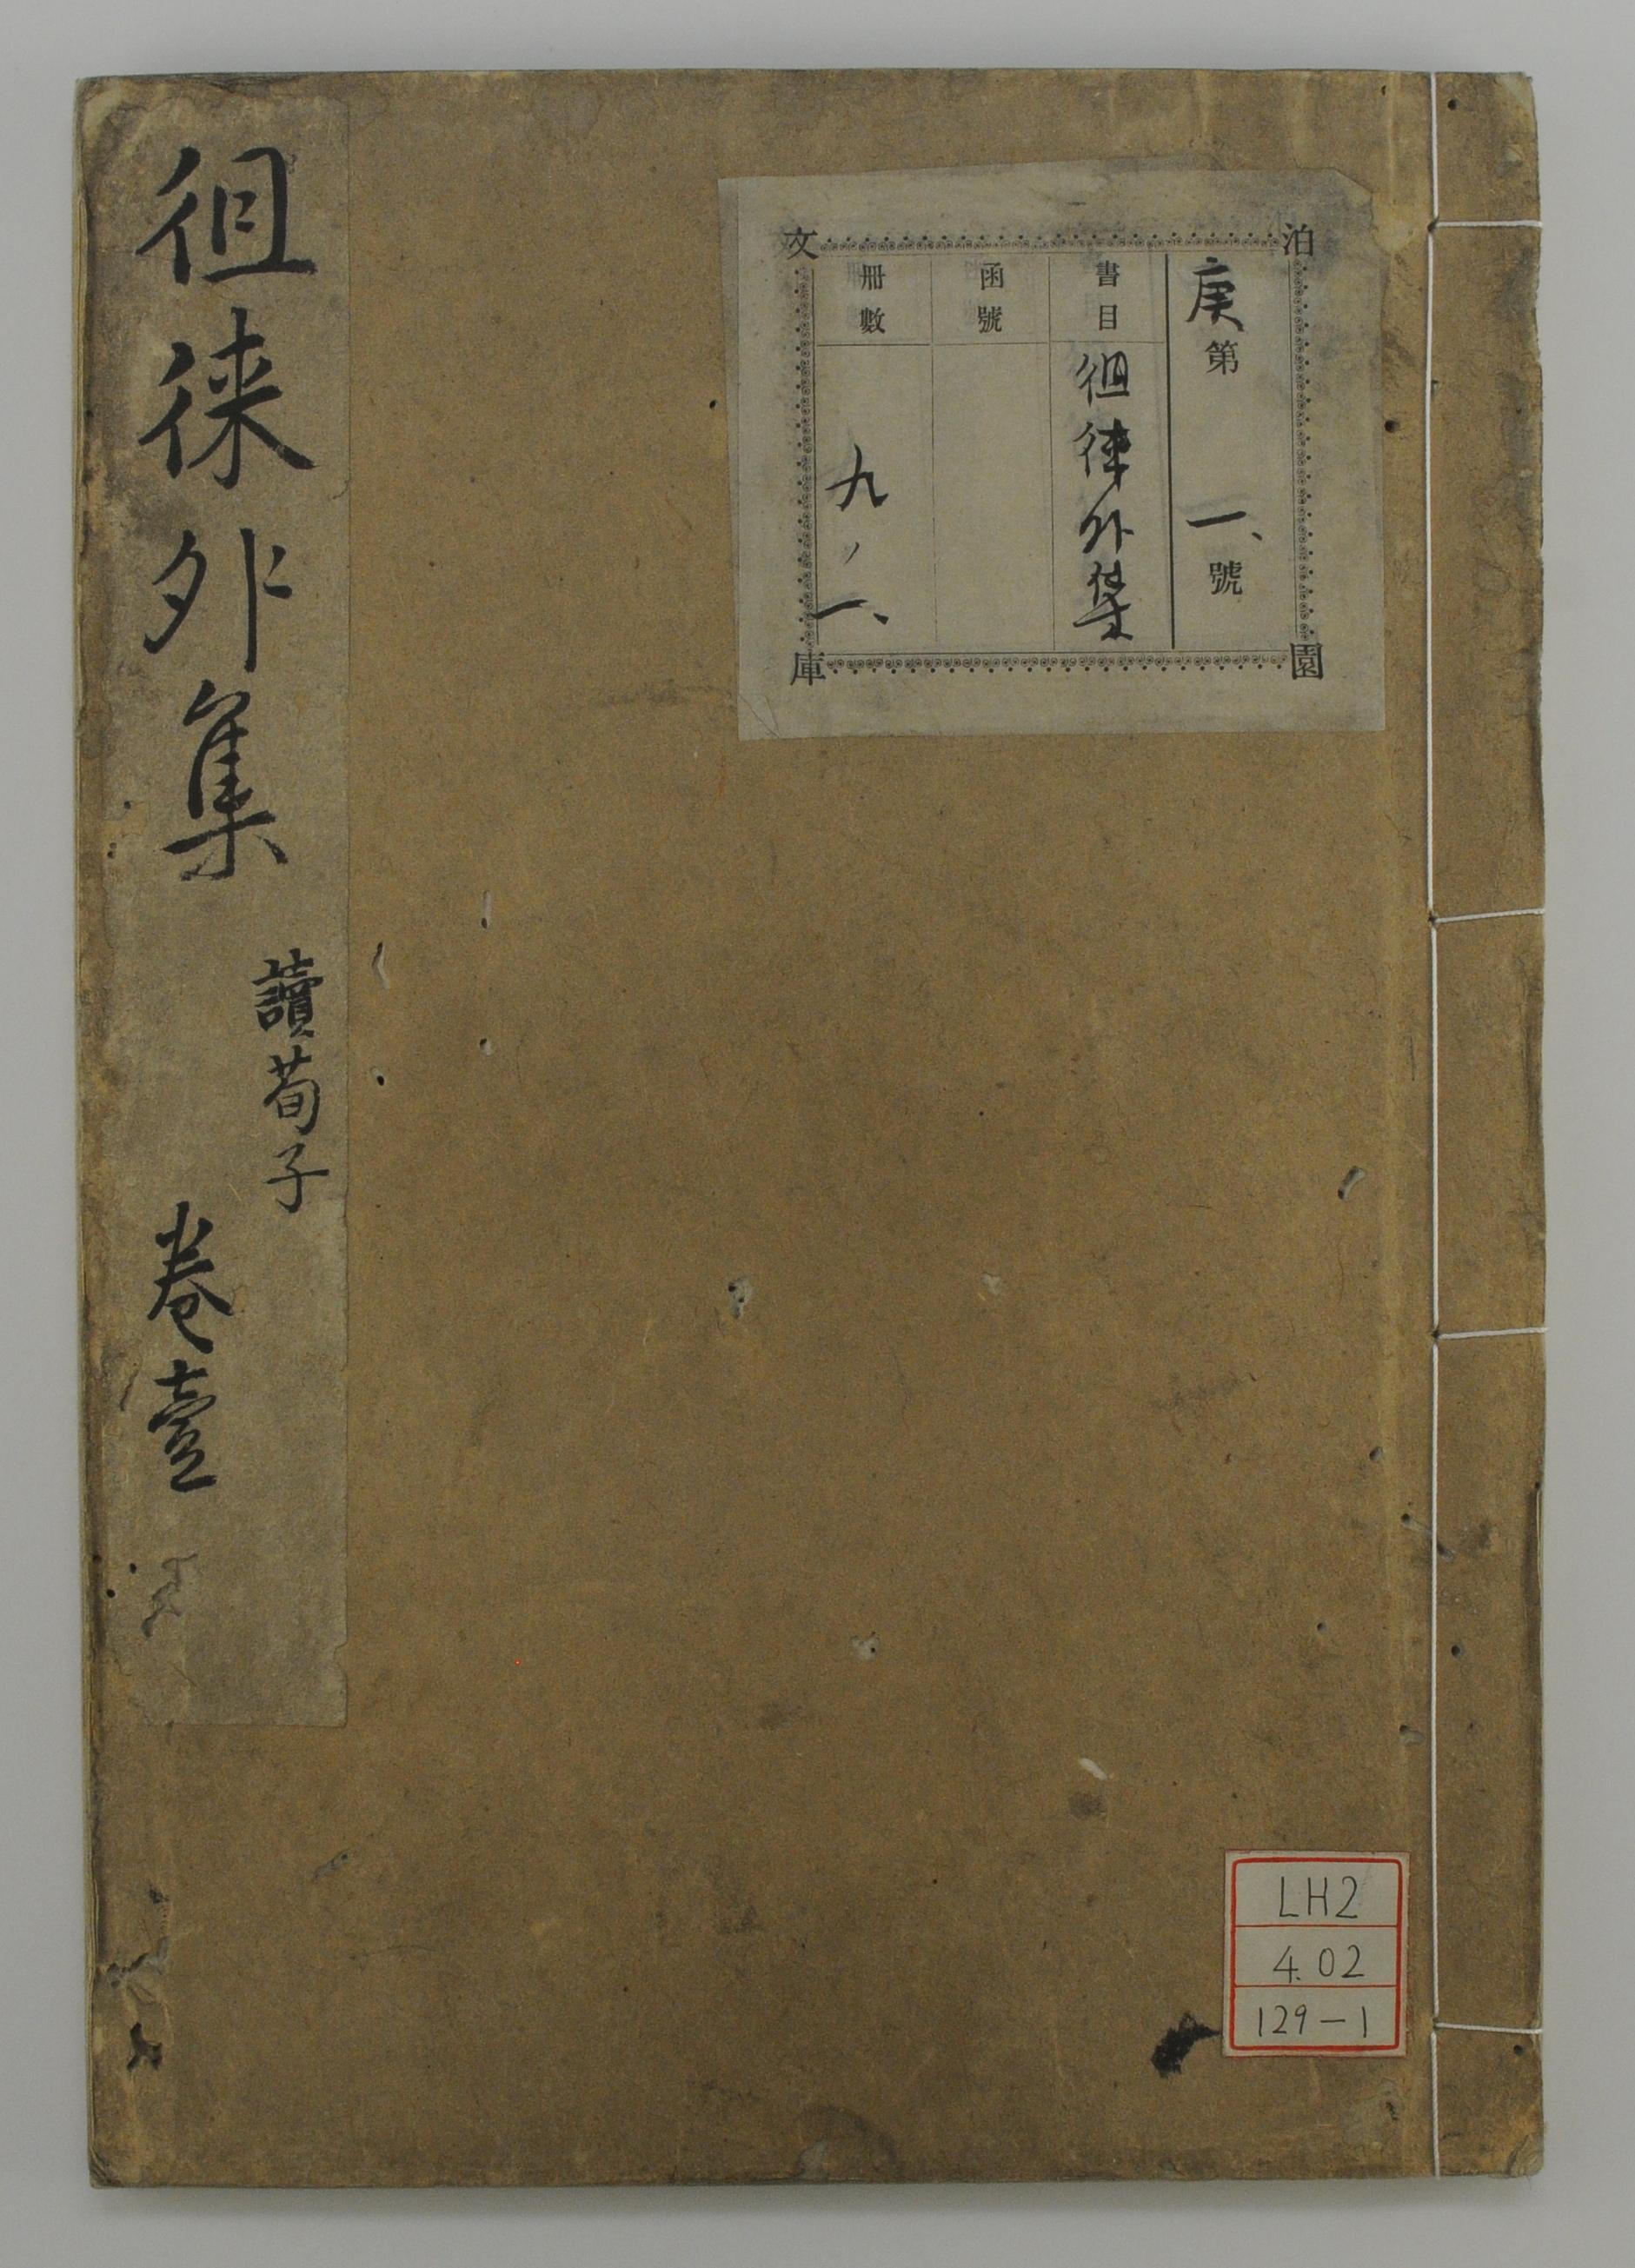 徂徠外集
讀荀子
卷壹
泊園文庫
庚第一、號
書目
徂徠外集
函號
冊數
九ノ一、
LH2
4.02
129-1